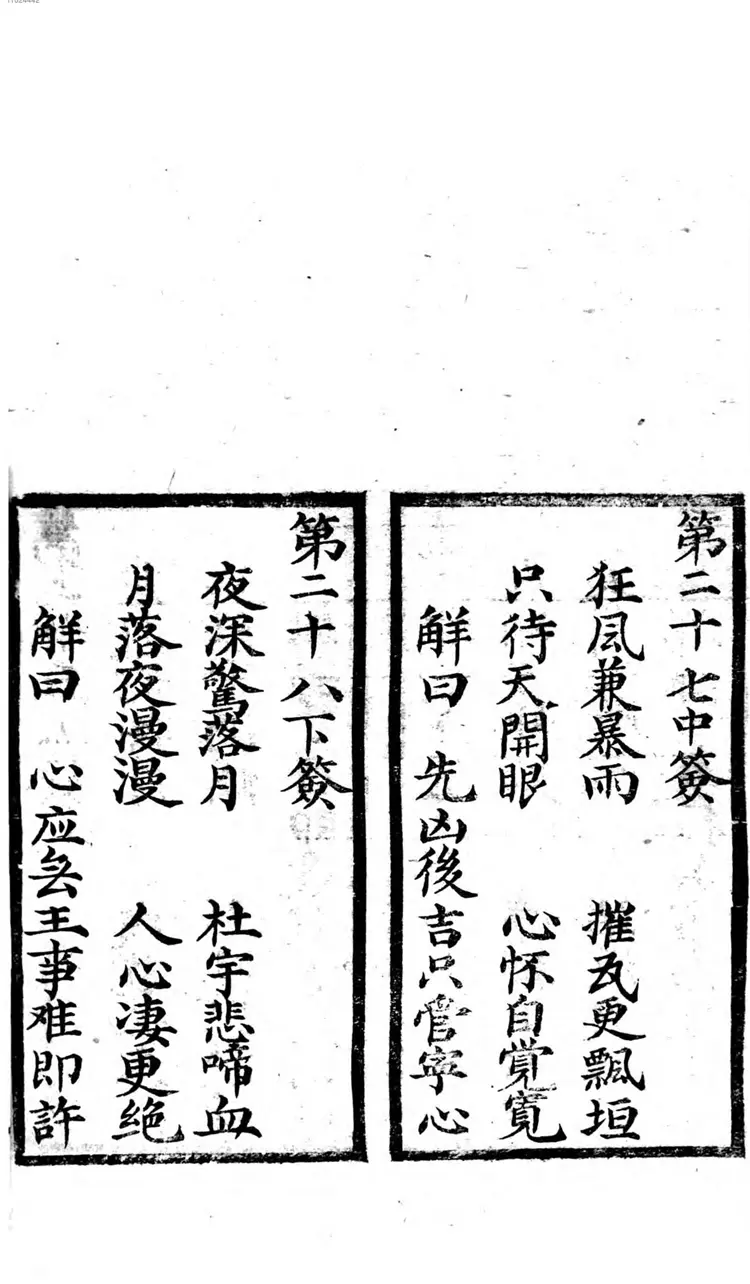 第二十七中簽
狂風兼暴雨　摧瓦更飄垣
只待天開眼　心怀自覺寬
解曰　先凶後吉只管寧心
第二十八下簽
夜深驚落月　杜宇悲啼血
月落夜漫漫　人心凄更絶
解曰　心应无主事难即許